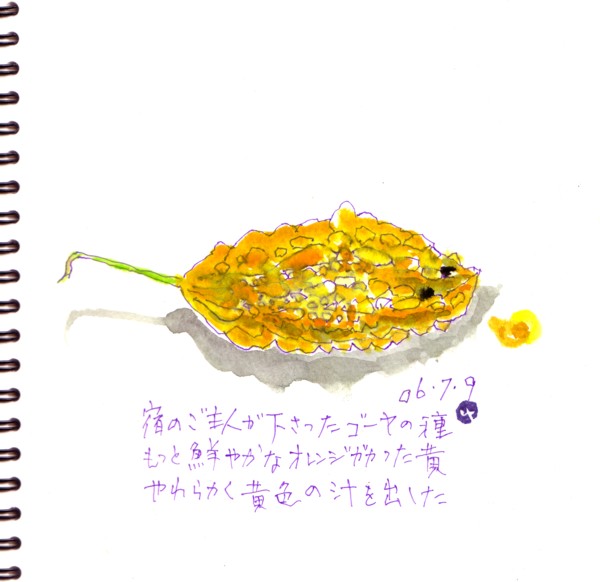 06.7.9
宿のご主人が下さったゴーヤの種
もっと鮮やかなオレンジがかった黄
やわらかく黄色の汁を出した